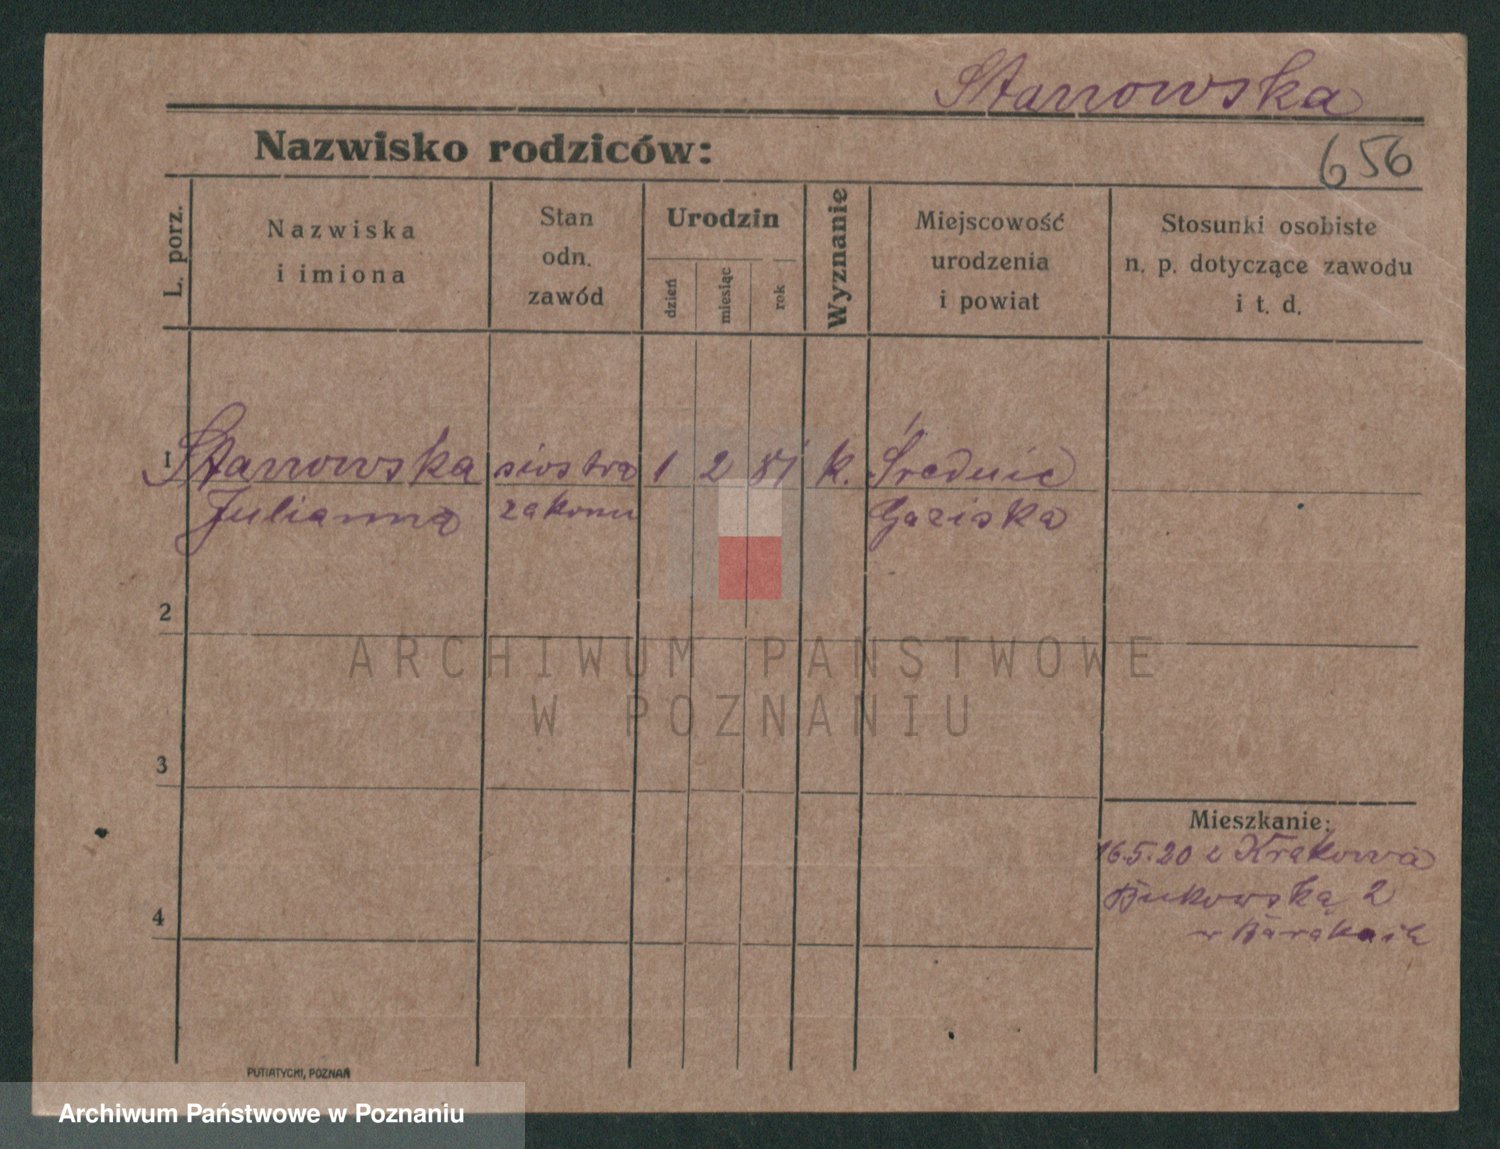 Stanowska
Nazwisko rodziców:
656
L. porz.
Nazwiska
i imiona
Stan
odn.
zawód
Urodzin
dzień
miesiąc
rok
Wyznanie
Miejscowość
urodzenia
i powiat
Stosunki osobiste
n. p. dotyczące zawodu
i t. d.
1
Stanowska siostra 1 2 81 k. Średnie
Julianna zakonu
2
ARCHIWUM PAŃSTWOWE
W POZNANIU
3
Mieszkanie:
16.5.20 z Krakowa
Bukowska 2
4
PUTIATYCKI, POZNAŃ
Archiwum Państwowe w Poznaniu